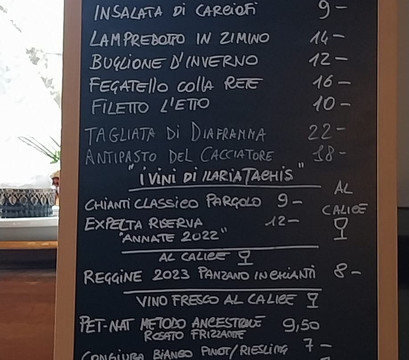 INSALATA DI CARCIOFI 9-
LAMPREDOTTO IN ZIMINO 14-
BUGLIONE D'INVERNO 12-
FEGATELLO COLLA RETE 16-
FILETTO L'ETTO 10-
TAGLIATA DI DIAFRAMMA 22-
ANTIPASTO DEL CACCIATORE 18-
"I VINI DI ILARIA TACHIS"
AL CALICE
CHIANTI CLASSICO PARGOLO 9-
EXPELTA RISERVA 12-
"ANNATE 2022"
AL CALICE
REGGINE 2023 PANZANO IN CHIANTI 8-
VINO FRESCO AL CALICE
PET-NAT METODO ANCESTRALE 9,50
ROSATO FRIZZANTE
CONGIURA BIANCO PINOT/RIESLING 7-